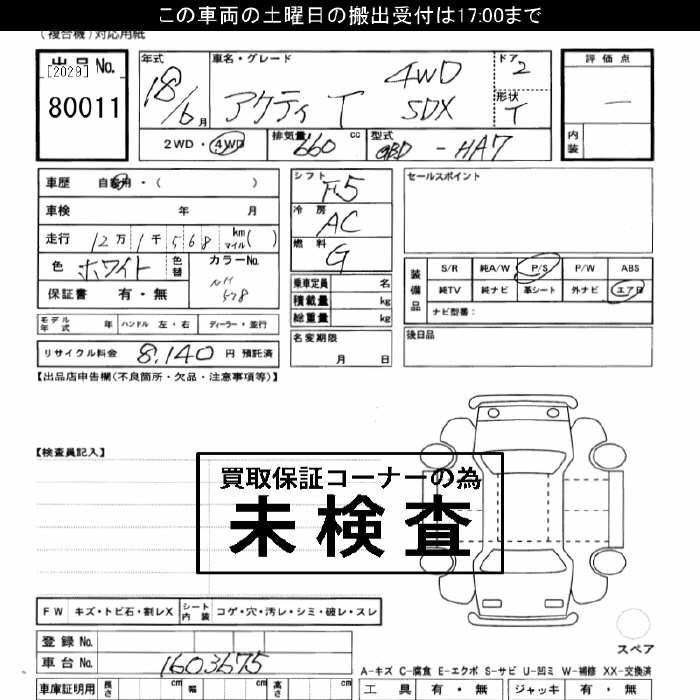 この車両の土曜日の搬出受付は17:00まで
(複合機)対応用紙
出品No.
[2029]
80011
年式
18/6月
車名・グレード
アクティ T
4WD
SDX
ドア
2
形状
T
2WD・4WD
排気量
660 cc
型式
GBD-HA7
評価点
—
内装
車歴 自家用・( )
車検 年 月
走行 12万1千568 kmマイル( )
色 ホワイト 色替
カラーNo.
NH
578
保証書 有・無
シフト
F5
冷房
AC
燃料
G
乗車定員 名
積載量 kg
総重量 kg
セールスポイント
装備品
S/R 純A/W P/S P/W ABS
純TV 純ナビ 革シート 外ナビ エアB
ナビ型番:
モデル年式 年 ハンドル 左・右 ディーラー・並行
リサイクル料金 8,140 円 預託済
名変期限
月 日
後日品
【出品店申告欄(不良箇所・欠品・注意事項等)】
【検査員記入】
買取保証コーナーの為
未検査
FW キズ・トビ石・割レX
シート内装 コゲ・穴・汚レ・シミ・破レ・スレ
登録No.
車台No. 1603675
スペア
A-キズ C-腐食 E-エクボ S-サビ U-凹ミ W-補修 XX-交換済
車庫証明用 長さ cm 幅 cm 高さ cm
工具 有・無 ジャッキ 有・無